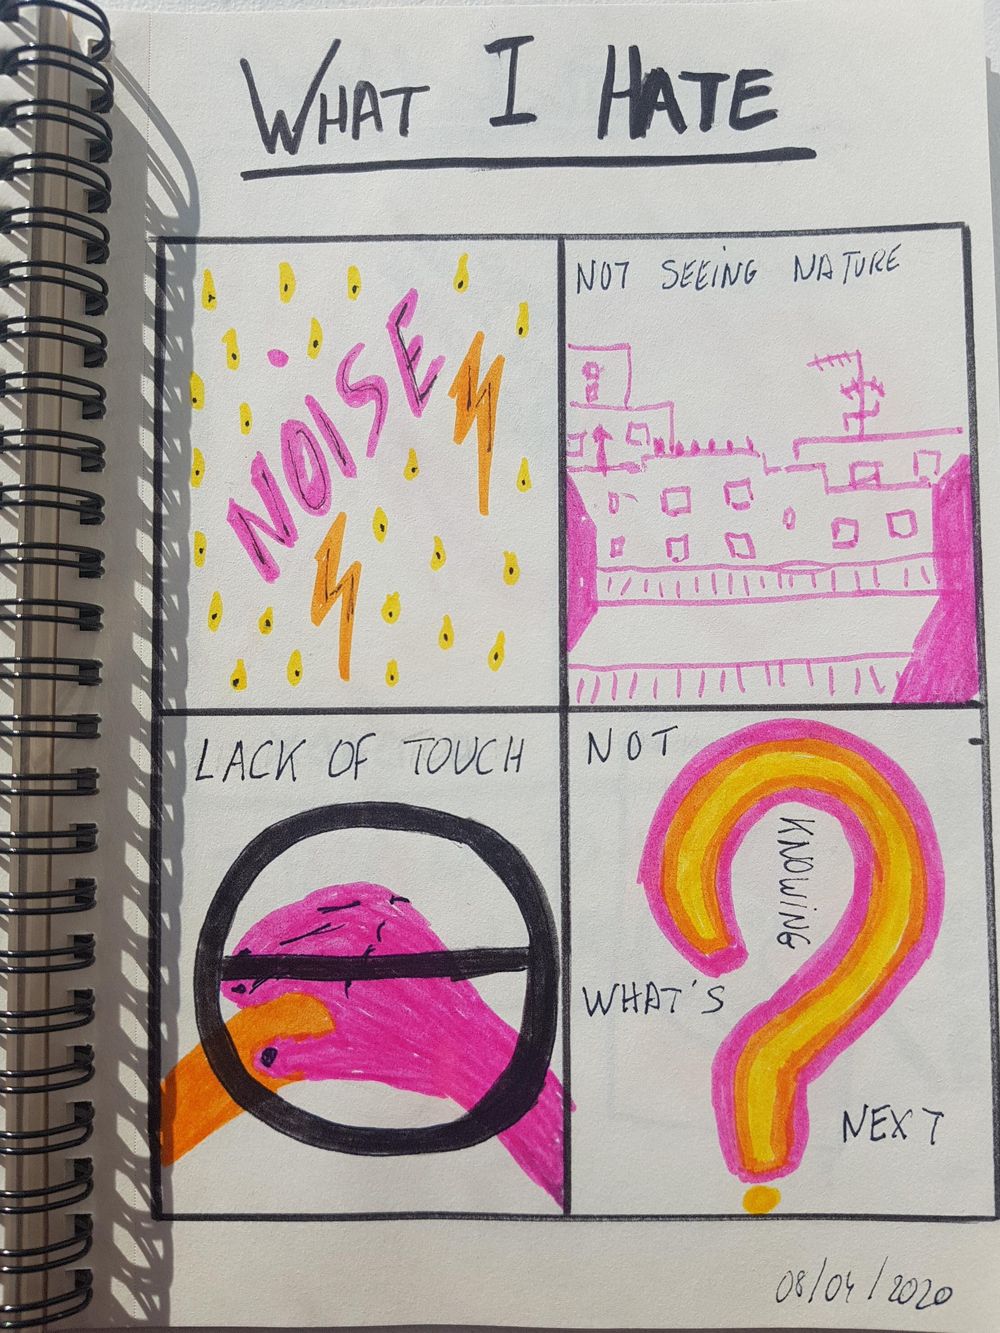 WHAT I HATE
NOISE
NOT SEEING NATURE
LACK OF TOUCH
NOT
KNOWING
WHAT'S
NEXT
08/04/2020